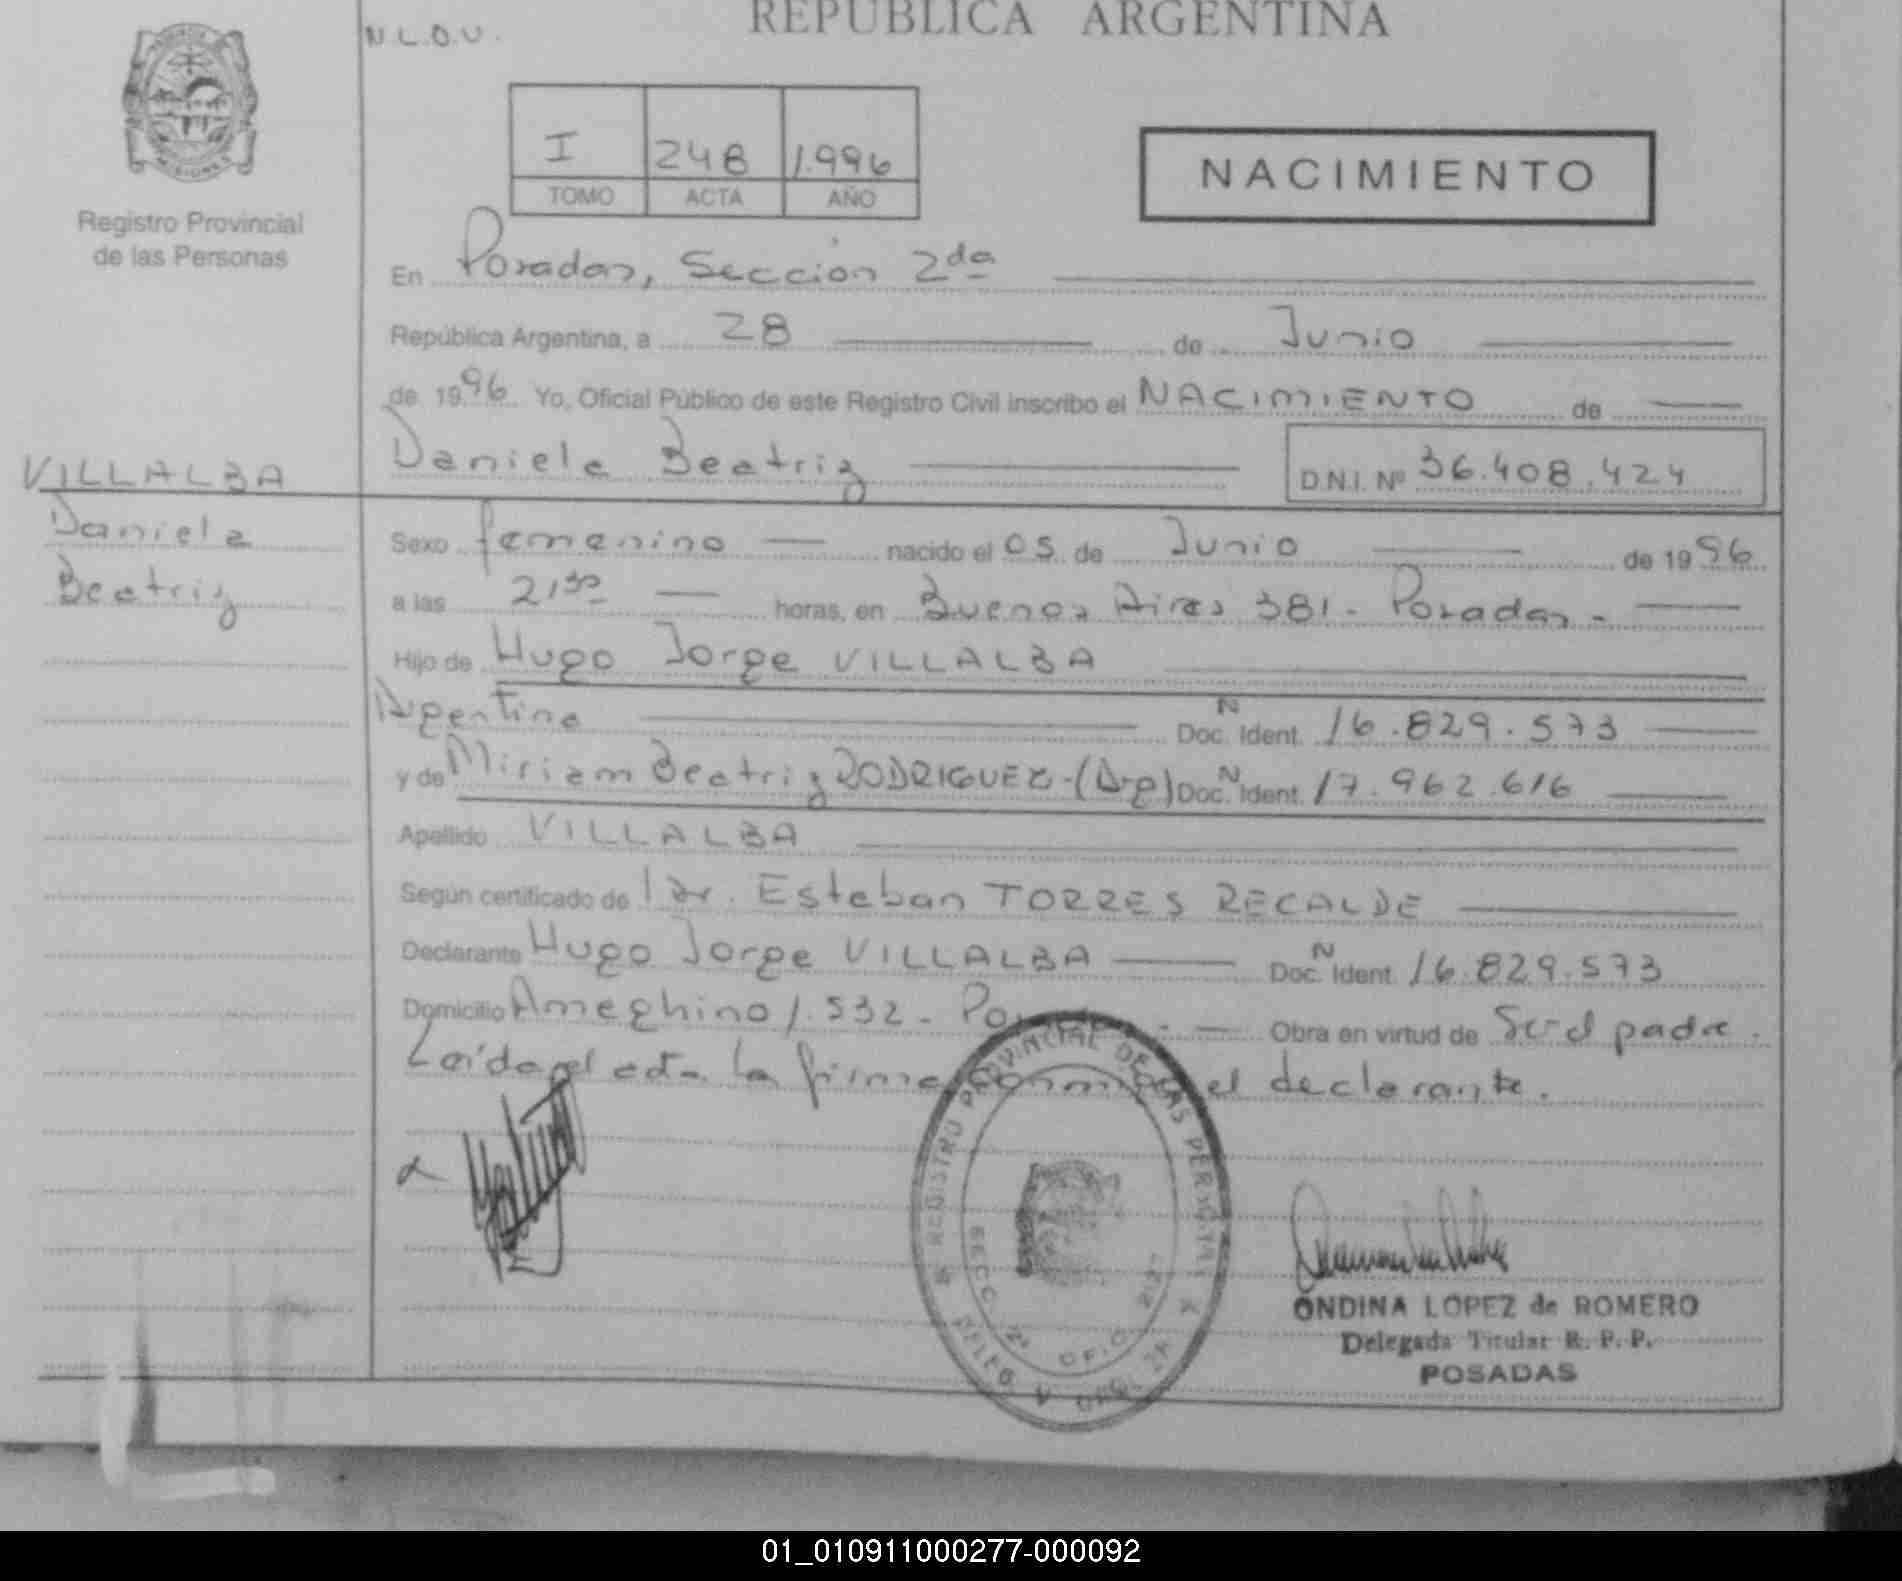 N.L.O.U.
REPUBLICA ARGENTINA
MISIONES
Registro Provincial
de las Personas
I 248 1.996
TOMO ACTA AÑO
NACIMIENTO
En Posadas, Sección 2da
República Argentina, a 28 de Junio
de 1996 Yo, Oficial Público de este Registro Civil inscribo el NACIMIENTO de
Daniela Beatriz D.N.I. Nº 36.408.424
VILLALBA
Daniela
Beatriz
Sexo femenino nacido el 05 de Junio de 1996
a las 21³⁰ horas, en Buenos Aires 381 - Posadas -
Hijo de Hugo Jorge VILLALBA
Argentino Doc. N Ident. 16.829.573
y de Miriam Beatriz RODRIGUEZ - (Arg) Doc. N Ident. 17.962.616
Apellido VILLALBA
Según certificado de Dr. Esteban TORRES RECALDE
Declarante Hugo Jorge VILLALBA Doc. N Ident. 16.829.573
Domicilio Ameghino 1.532 - Obra en virtud de Ser el padre.
Leída el acta la firma conmigo el declarante.
REGISTRO PROVINCIAL DE LAS PERSONAS
SECC. 2ª OFIC.
ONDINA LOPEZ de ROMERO
Delegada Titular R. P. P.
POSADAS
01_010911000277-000092